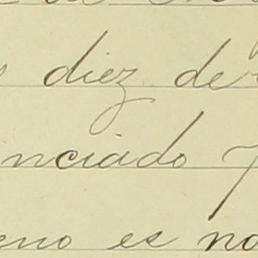 diez de
nciado
eno es no